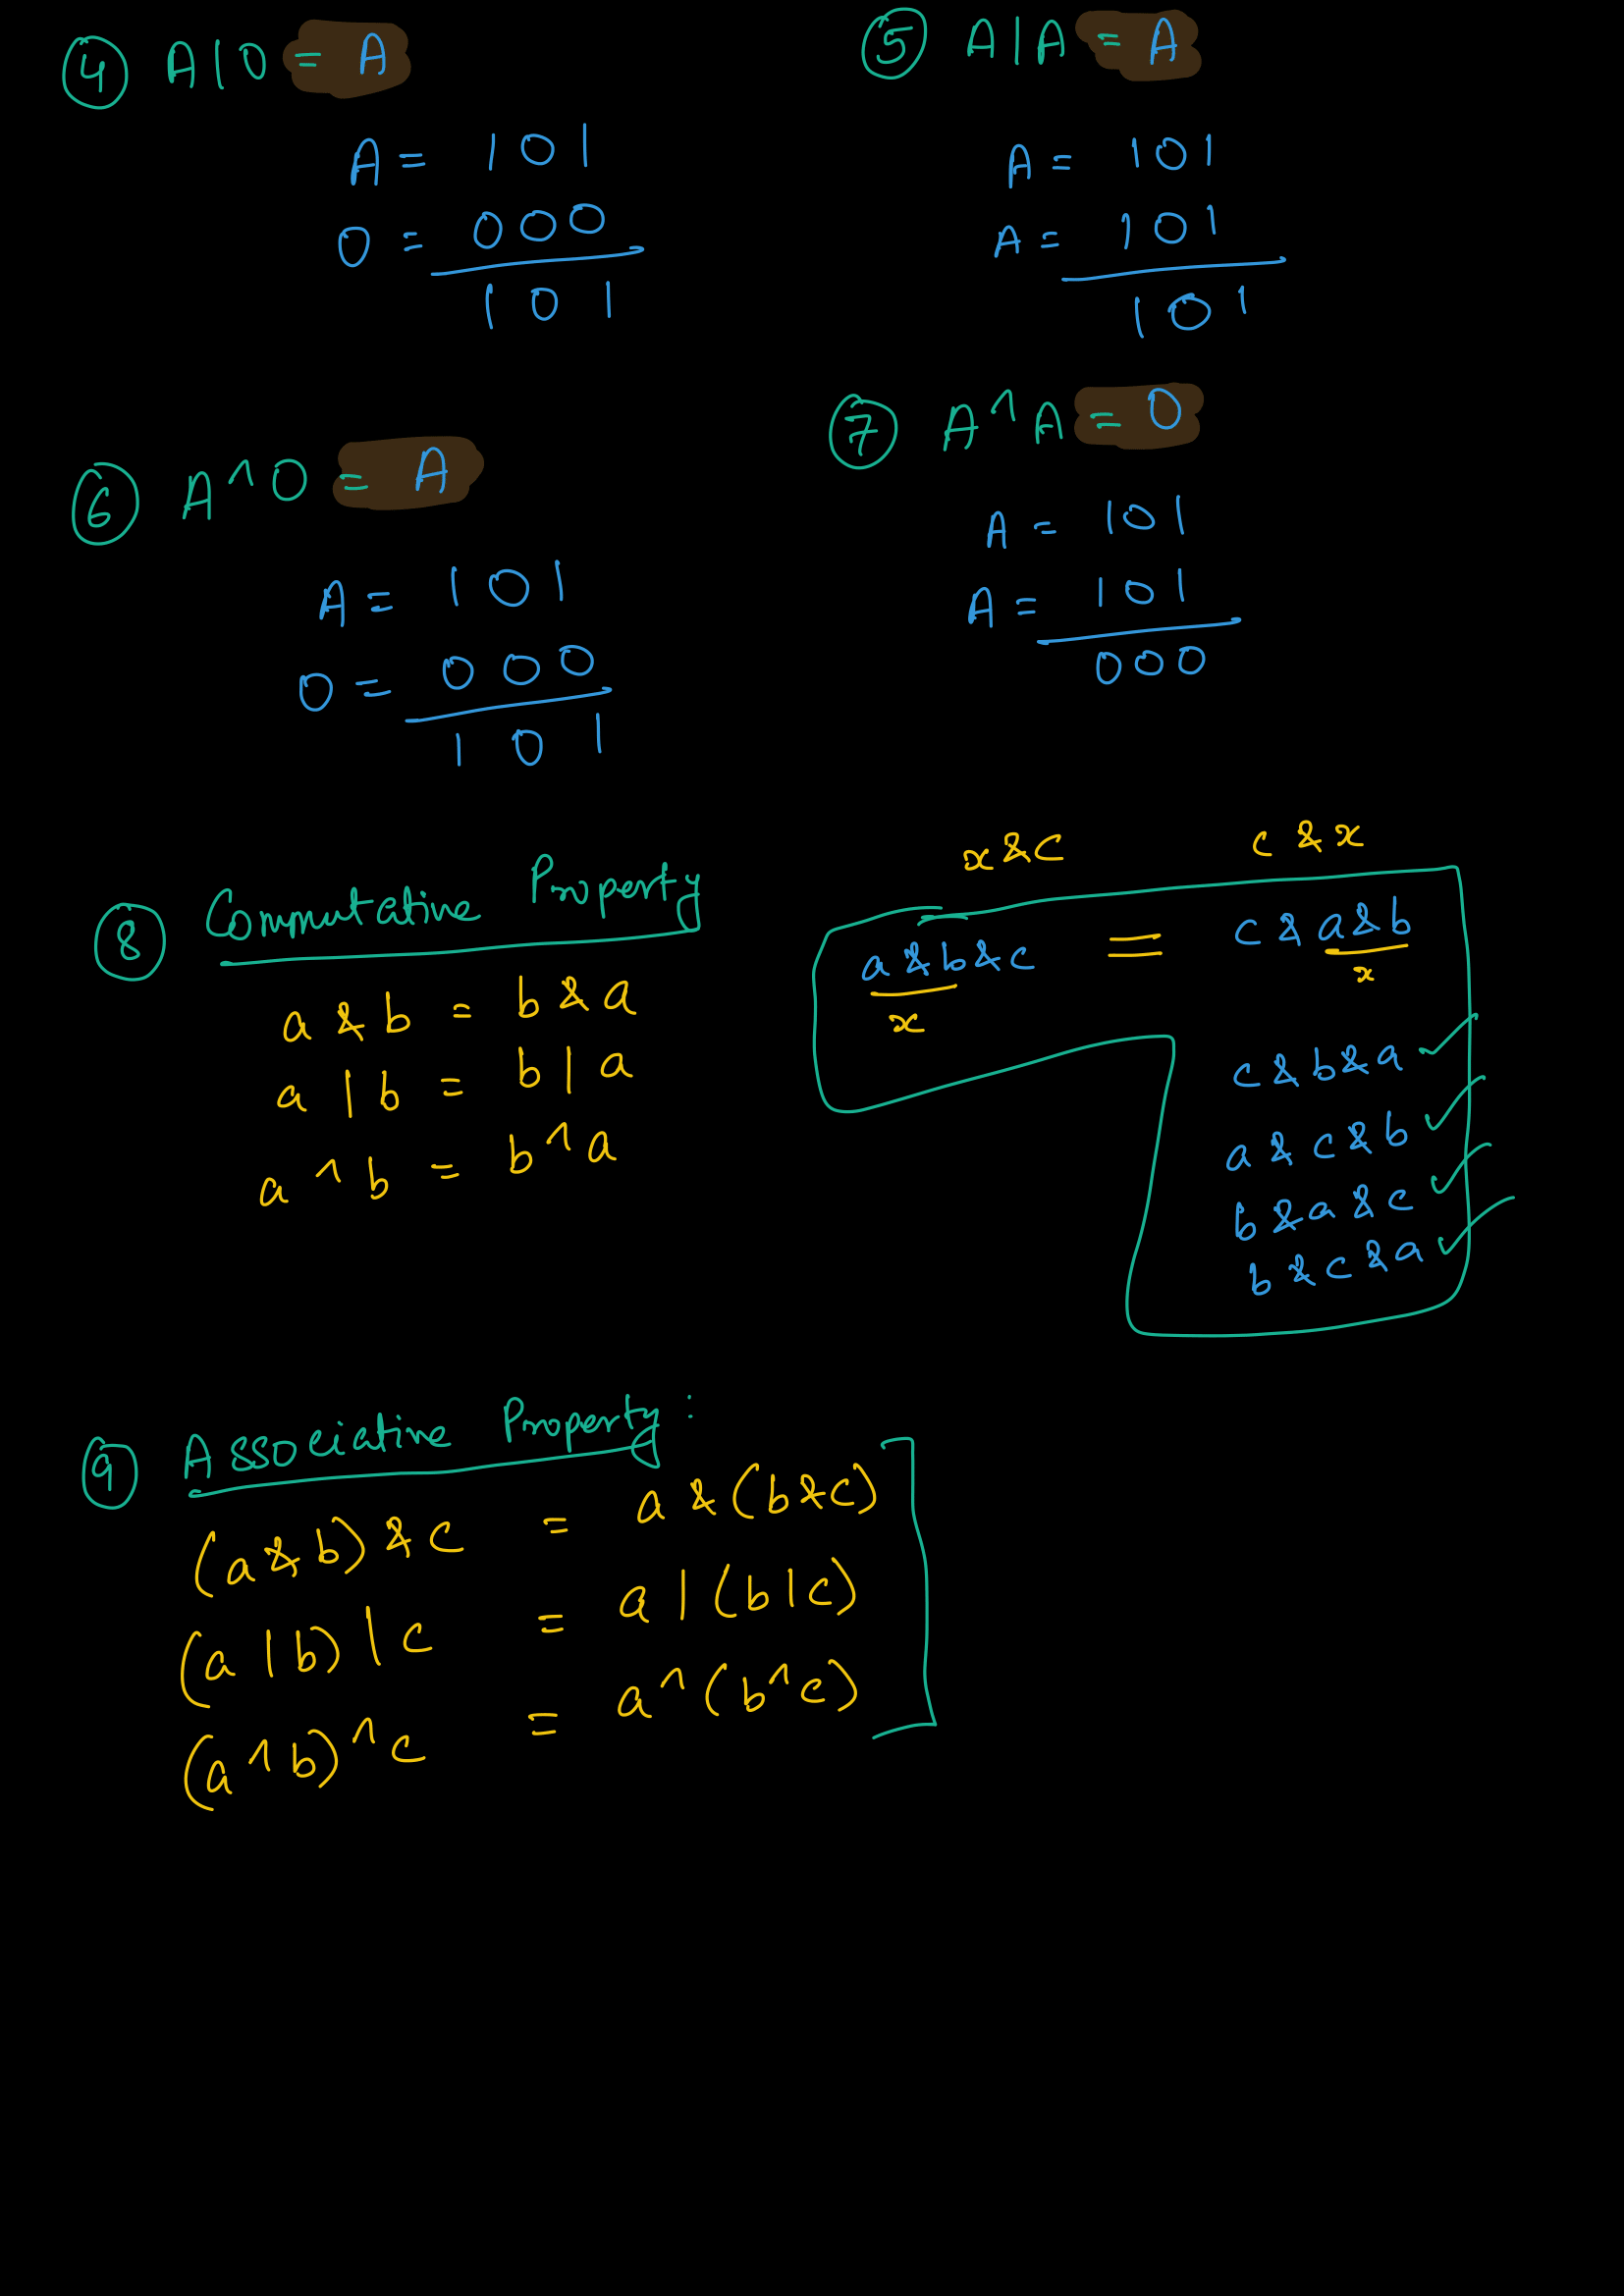 ④ A|0 = A
A = 101
0 = 000
101
⑤ A|A = A
A = 101
A = 101
101
⑥ A^0 = A
A = 101
0 = 000
101
⑦ A^A = 0
A = 101
A = 101
000
⑧ Commutative Property
a & b = b & a
a | b = b | a
a ^ b = b ^ a
x & c c & x
a & b & c = c & a & b
x x
c & b & a ✓
a & c & b ✓
b & a & c ✓
b & c & a ✓
⑨ Associative Property :
(a & b) & c = a & (b & c)
(a | b) | c = a | (b | c)
(a ^ b) ^ c = a ^ (b ^ c)